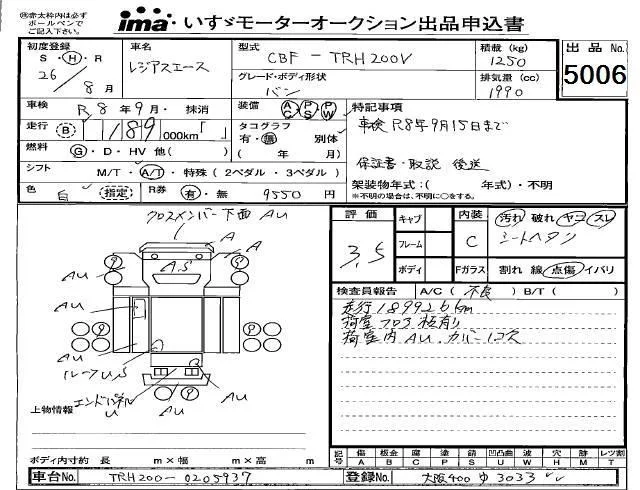 ㊟赤太枠内は必ず ボールペンで ご記入下さい。
ima・いすゞモーターオークション出品申込書
初度登録 S・H・R 26年 8月
車名 レジアスエース
型式 CBF-TRH200V
積載 (kg) 1250
出品No. 5006
グレード・ボディ形状 バン
排気量 (cc) 1990
車検 R8年9月・抹消
装備 AC PS PW
特記事項
走行 B 189,000km「 」
タコグラフ 有・無 別体 ( 年 月)
車検R8年9月15日まで
燃料 G・D・HV 他( )
シフト M/T・A/T・特殊(2ペダル・3ペダル)
保証書・取説 後送
色 白 (指定) R券 有・無 9550円
架装物年式:( 年式)・不明
※不明の場合は、不明に○をする。
クロスメンバー下面 AU
評価 3.5
キャブ
フレーム
ボディ
内装 C
Fガラス
汚れ 破れ ヤコ スレ
シートヘタリ
割れ 線 点傷 イバリ
A
A
A.S
AU
AU
AU
AU
AU
ルーフU,S
AU
エンドパネル U
検査員報告 A/C(不良) B/T( )
走行189926km
荷室フロア板有り
荷室内AU.カバー1コ欠
上物情報
ボディ内寸約 長 m×幅 m×高 m
記号 傷 板金 腐 塗 錆 凹凸曲 波 穴 跡 レツ割
A B C P S U W H M T
車台No. TRH200-0205937
登録No. 大阪400ゆ3033